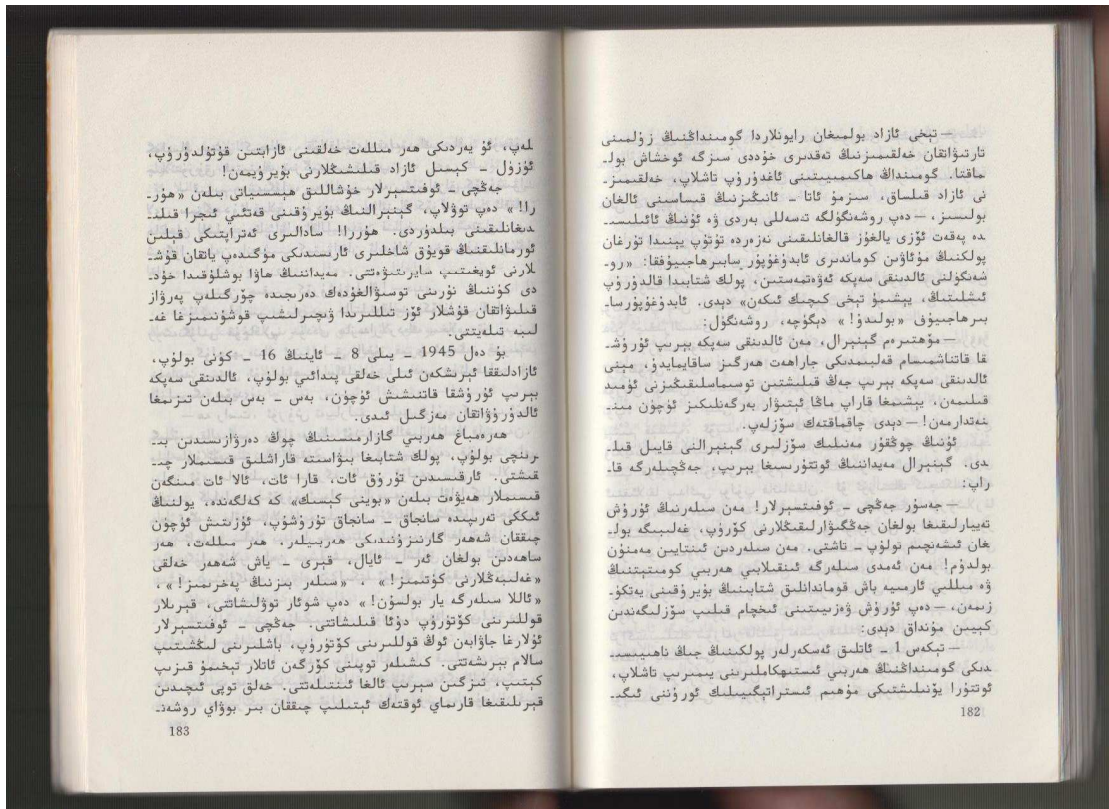 — تېخى ئازاد بولمىغان رايونلاردا گومىنداڭنىڭ زۇلمىنى
تارتىۋاتقان خەلقىمىزنىڭ تەقدىرى خۇددى سىزگە ئوخشاش بول‍ـ
ماقتا. گومىنداڭ ھاكىمىيىتىنى ئاغدۇرۇپ تاشلاپ، خەلقىمىزـ
نى ئازاد قىلساق، سىزمۇ ئاتا ـ ئانىڭىزنىڭ قىساسىنى ئالغان
بولىسىز، — دەپ روشەنگۈلگە تەسەللى بەردى ۋە ئۇنىڭ ئائىلىسىـ
دە پەقەت ئۆزى يالغۇز قالغانلىقىنى نەزەردە تۇتۇپ يېنىدا تۇرغان
پولكنىڭ مۇئاۋىن كوماندىرى ئابدۇغۇپۇر سابىرھاجىيوفقا: «روـ
شەنگۈلنى ئالدىنقى سەپكە ئەۋەتمەستىن، پولك شتابىدا قالدۇرۇپ
ئىشلىتىڭ، يېشىمۇ تېخى كىچىك ئىكەن» دېدى. ئابدۇغۇپۇرساـ
بىرھاجىيوف «بولىدۇ!» دېگۈچە، روشەنگۈل:
— مۆھتىرەم گېنېرال، مەن ئالدىنقى سەپكە بېرىپ ئۇرۇشـ
قا قاتناشمىسام قەلبىمدىكى جاراھەت ھەرگىز ساقايمايدۇ، مېنى
ئالدىنقى سەپكە بېرىپ جەڭ قىلىشتىن توسىماسلىقىڭىزنى ئۈمىد
قىلىمەن، يېشىمغا قاراپ ماڭا ئېتىبار بەرگەنلىكىز ئۈچۈن مىنـ
نەتدارمەن! — دېدى چاقماقتەك سۆزلەپ.
ئۇنىڭ چوڭقۇر مەنىلىك سۆزلىرى گېنېرالنى قايىل قىلـ
دى. گېنېرال مەيداننىڭ ئوتتۇرىسىغا بېرىپ، جەڭچىلەرگە قاـ
راپ:
— جەسۇر جەڭچى ـ ئوفىتسېرلار! مەن سىلەرنىڭ ئۇرۇش
تەييارلىقىغا بولغان جەڭگىۋارلىقىڭلارنى كۆرۈپ، غەلىبىگە بولـ
غان ئىشەنچىم تولۇپ ـ تاشتى. مەن سىلەردىن ئىنتايىن مەمنۇن
بولدۇم! مەن ئەمدى سىلەرگە ئىنقىلابىي ھەربىي كومىتېتنىڭ
ۋە مىللىي ئارمىيە باش قوماندانلىق شتابىنىڭ بۇيرۇقىنى يەتكۈـ
زىمەن، — دەپ ئۇرۇش ۋەزىيىتىنى ئىخچام قىلىپ سۆزلىگەندىن
كېيىن مۇنداق دېدى:
— تېكەس 1 ـ ئاتلىق ئەسكەرلەر پولكىنىڭ جىڭ ناھىيىسىـ
دىكى گومىنداڭنىڭ ھەربىي ئىستىھكاملىرىنى يىمىرىپ تاشلاپ،
ئوتتۇرا يۆنىلىشتىكى مۇھىم ئىستراتېگىيىلىك ئورۇننى ئىگىـ
182
لەپ، ئۇ يەردىكى ھەر مىللەت خەلقىنى ئازابتىن قۇتۇلدۇرۇپ،
ئۈزۈل ـ كېسىل ئازاد قىلىشىڭلارنى بۇيرۇيمەن!
جەڭچى ـ ئوفىتسېرلار خۇشاللىق ھېسسىياتى بىلەن «ھۇرـ
را!» دەپ توۋلاپ، گېنېرالنىڭ بۇيرۇقىنى قەتئىي ئىجرا قىلىـ
دىغانلىقىنى بىلدۈردى. ھۇررا! سادالىرى ئەتراپتىكى قىلىن
ئورمانلىقنىڭ قويۇق شاخلىرى ئارىسىدىكى مۈگدەپ ياتقان قۇشـ
لارنى ئويغىتىپ سايرىتىۋەتتى. مەيداننىڭ ھاۋا بوشلۇقىدا خۇدـ
دى كۈننىڭ نۇرىنى توسۇۋالغۇدەك دەرىجىدە چۆرگىلەپ پەرۋاز
قىلىۋاتقان قۇشلار ئۆز تىللىرىدا ۋىچىرلىشىپ قوشۇنىمىزغا غەـ
لىبە تىلەيتتى.
بۇ دەل 1945 ـ يىلى 8 ـ ئاينىڭ 16 ـ كۈنى بولۇپ،
ئازادلىققا ئېرىشكەن ئىلى خەلقى پىدائىي بولۇپ، ئالدىنقى سەپكە
بېرىپ ئۇرۇشقا قاتنىشىش ئۈچۈن، بەس ـ بەس بىلەن تىزىمغا
ئالدۇرۇۋاتقان مەزگىل ئىدى.
ھەرەمباغ ھەربىي گازارمىسىنىڭ چوڭ دەرۋازىسىدىن بىـ
رىنچى بولۇپ، پولك شتابىغا بىۋاسىتە قاراشلىق قىسىملار چىـ
قىشتى. ئارقىسىدىن تۇرۇق ئات، قارا ئات، ئالا ئات مىنگەن
قىسىملار ھەيۋەت بىلەن «بويىنى كېسىك» كە كەلگەندە، يولنىڭ
ئىككى تەرىپىدە سانجاق ـ سانجاق تۇرۇشۇپ، ئۇزىتىش ئۈچۈن
چىققان شەھەر گارنىزونىدىكى ھەربىيلەر، ھەر مىللەت، ھەر
ساھەدىن بولغان ئەر ـ ئايال، قېرى ـ ياش شەھەر خەلقى
«غەلىبەڭلارنى كۈتىمىز!» ، «سىلەر بىزنىڭ پەخرىمىز!» ،
«ئاللا سىلەرگە يار بولسۇن!» دەپ شوئار توۋلىشاتتى، قېرىلار
قوللىرىنى كۆتۈرۈپ دۇئا قىلىشاتتى. جەڭچى ـ ئوفىتسېرلار
ئۇلارغا جاۋابەن ئوڭ قوللىرىنى كۆتۈرۈپ، باشلىرىنى لىڭشىتىپ
سالام بېرىشەتتى. كىشىلەر توپىنى كۆرگەن ئاتلار تېخىمۇ قىزىپ
كېتىپ، تىزگىن سىرىپ ئالغا ئىنتىلەتتى. خەلق توپى ئىچىدىن
قېرىلىقىغا قارىماي ئوقتەك ئېتىلىپ چىققان بىر بوۋاي روشەنـ
183